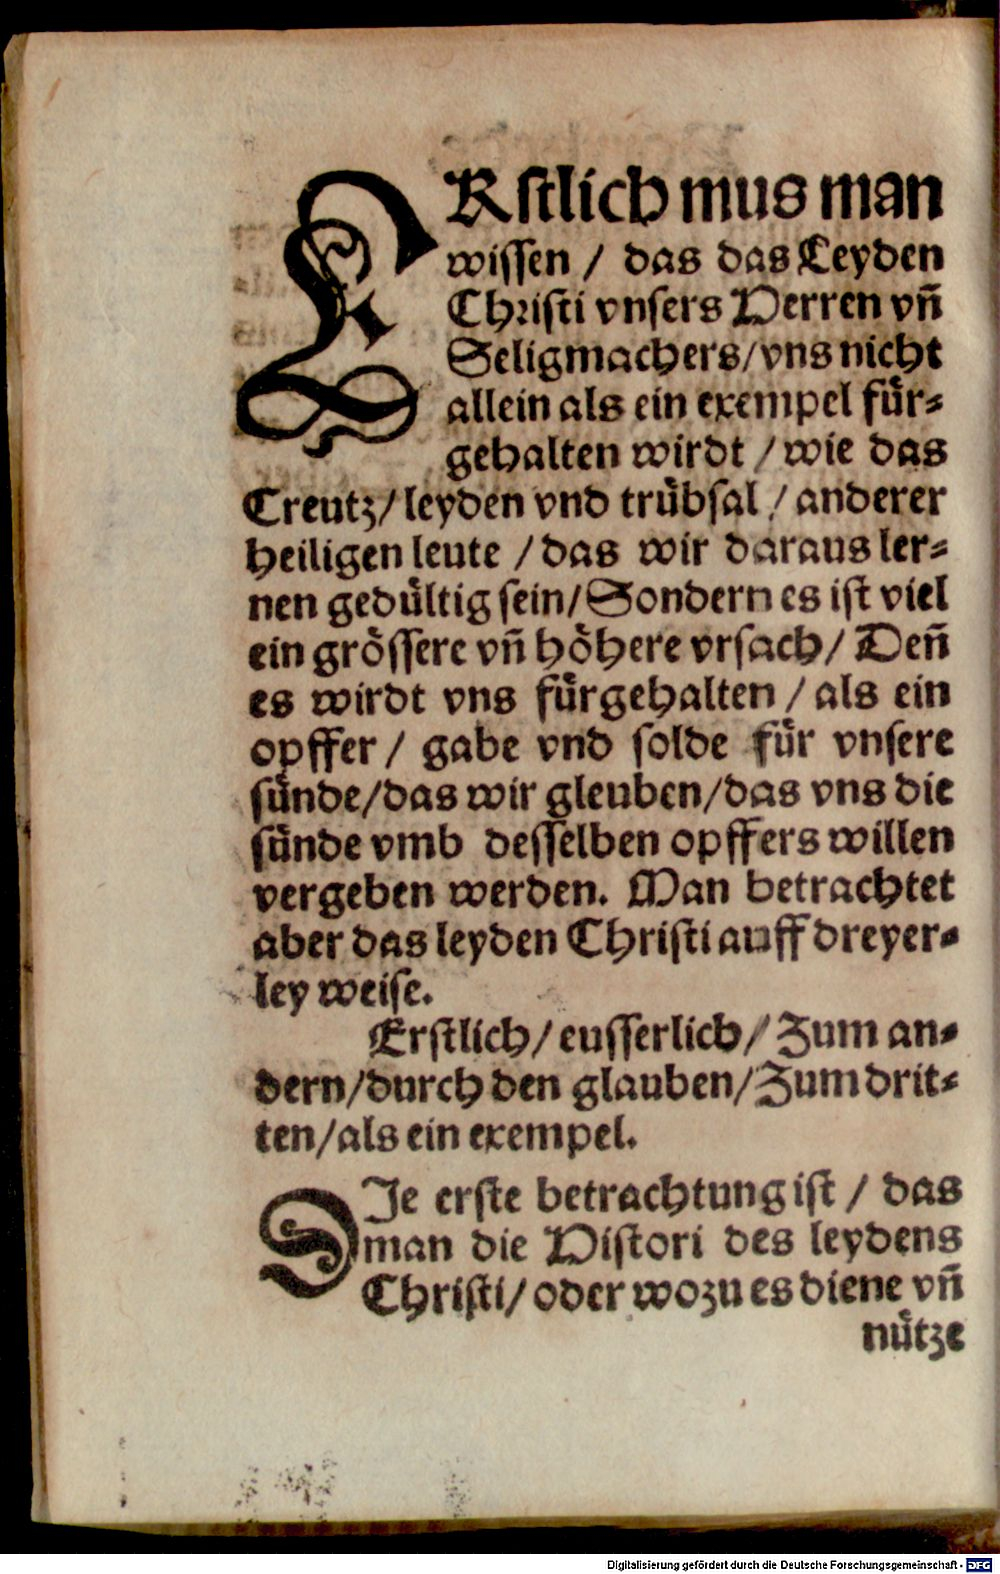 ERstlich mus man
wissen / das das Leyden
Christi vnsers Herren vñ
Seligmachers/vns nicht
allein als ein exempel fuͤr⸗
gehalten wirdt / wie das
Creutz/leyden vnd truͤbsal / anderer
heiligen leute / das wir daraus ler⸗
nen geduͤltig sein/Sondern es ist viel
ein groͤssere vñ hoͤhere vrsach/ Deñ
es wirdt vns fuͤrgehalten / als ein
opffer / gabe vnd solde fuͤr vnsere
suͤnde/das wir gleuben/das vns die
suͤnde vmb desselben opffers willen
vergeben werden. Man betrachtet
aber das leyden Christi auff dreyer⸗
ley weise.
Erstlich/eusserlich/Zum an⸗
dern/durch den glauben/Zum drit⸗
ten/als ein exempel.
DJe erste betrachtung ist / das
man die Histori des leydens
Christi/oder wozu es diene vñ
nuͤtze
Digitalisierung gefördert durch die Deutsche Forschungsgemeinschaft - DFG